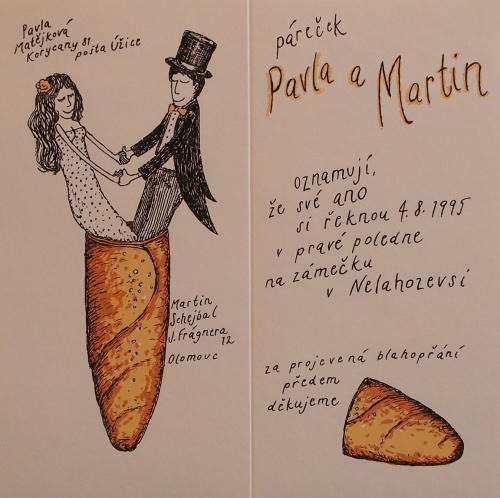 Pavla
Matějková
Korycany 81
pošta Úžice
Martin
Schejbal
J. Fragnera
12
Olomouc
páreček
Pavla a Martin
oznamují,
že své ano
si řeknou 4.8.1995
v pravé poledne
na zámečku
v Nelahozevsi
za projevená blahopřání
předem
děkujeme